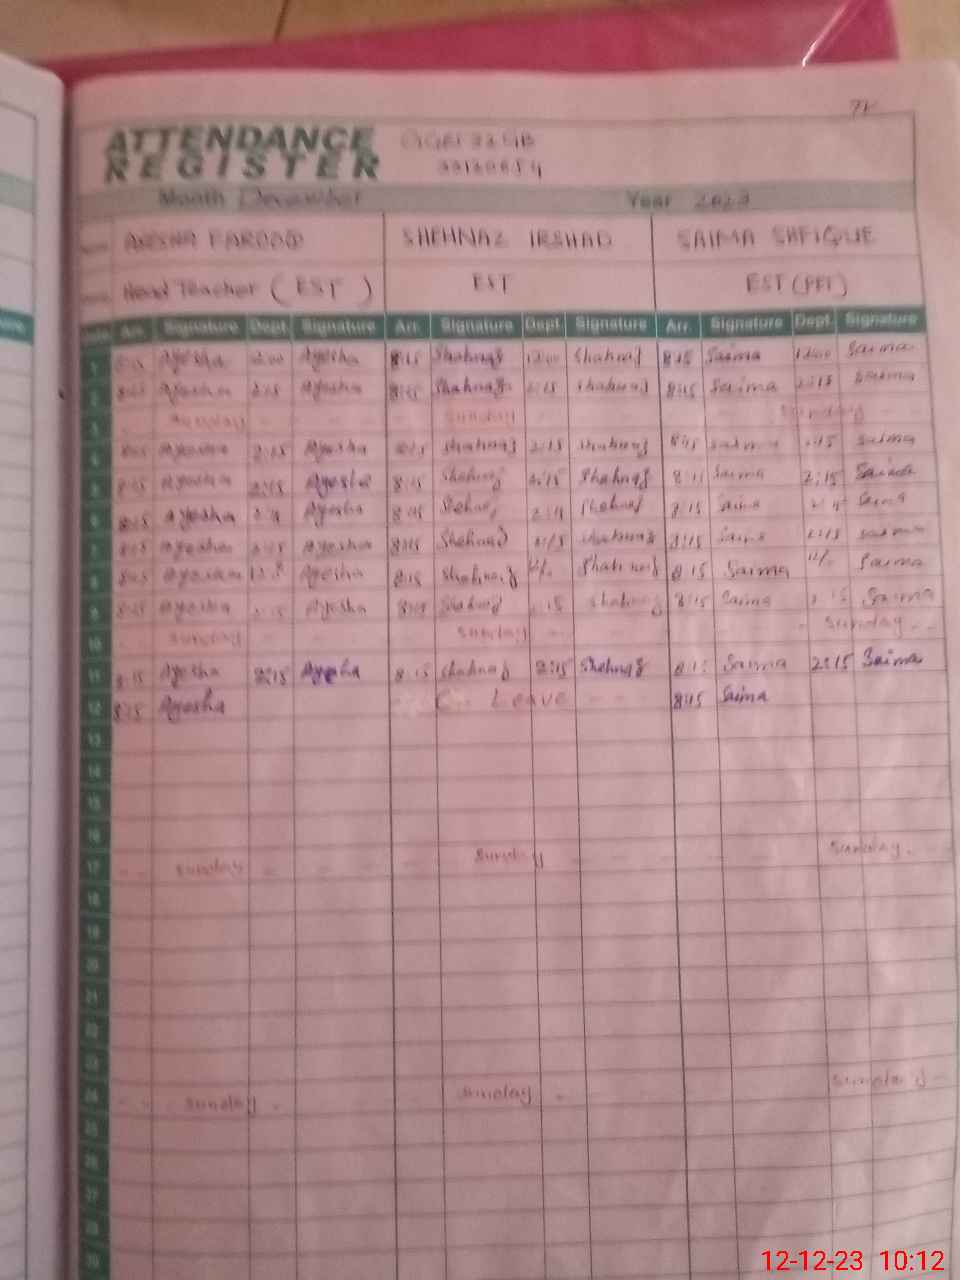 ATTENDANCE
REGISTER
Month December Year 2023
AYESHA FAROOQ SHEHNAZ IRSHAD SAIMA SHFIQUE
Head Teacher (EST) EST EST (PET)
Arr. Signature Dept. Signature Arr. Signature Dept. Signature Arr. Signature Dept. Signature
1 Ayesha 12:00 Ayesha 8:15 Shahnaz 12:00 Shahnaz 8:15 Saima 12:00 Saima
2 8:15 Ayesha 2:15 Ayesha 8:15 Shahnaz 2:15 Shahnaz 8:15 Saima 2:15 Saima
3 Sunday Sunday Sunday
4 8:15 Ayesha 2:15 Ayesha 8:15 Shahnaz 2:15 Shahnaz 8:15 Saima 2:15 Saima
5 8:15 Ayesha 2:15 Ayesha 8:15 Shahnaz 2:15 Shahnaz 8:15 Saima 2:15 Saima
6 8:15 Ayesha Ayesha 8:15 Shahnaz 2:15 Shahnaz 8:15 Saima 2:15 Saima
7 8:15 Ayesha 2:15 Ayesha 8:15 Shahnaz 2:15 Shahnaz 8:15 Saima 2:15 Saima
8 8:15 Ayesha Ayesha 8:15 Shahnaz Shahnaz 8:15 Saima Saima
9 8:15 Ayesha 2:15 Ayesha 8:15 Shahnaz 2:15 Shahnaz 8:15 Saima 2:15 Saima
10 Sunday Sunday Sunday
11 8:15 Ayesha 2:15 Ayesha 8:15 Shahnaz 2:15 Shehnaz 8:15 Saima 2:15 Saima
12 8:15 Ayesha Leave 8:15 Saima
13
14
15
16
17 Sunday Sunday Sunday
18
19
20
21
22
23
24 Sunday Sunday Sunday
25
26
27
28
29
12-12-23 10:12